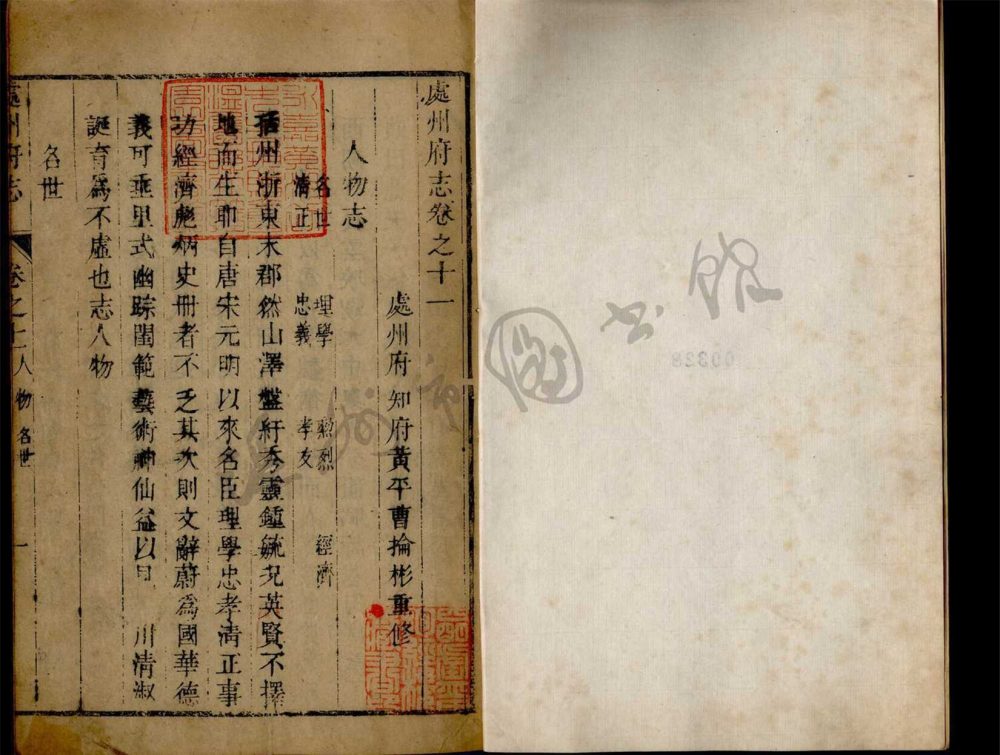 處州府志卷之十一
處州府知府黃平曹掄彬重修
人物志
名世 理學 勲烈 經濟
清正 忠義 孝友
括州浙東末郡然山澤盤紆秀靈鍾毓况英賢不擇
地而生耶自唐宋元明以來名臣理學忠孝清正事
功經濟彪炳史冊者不乏其次則文辭蔚爲國華德
義可垂里式幽踪閨範藝術神仙益以見 川清淑
誕育爲不虛也志人物
名世
處州府志 卷之十一 人物 名世 一
圖書館
00328